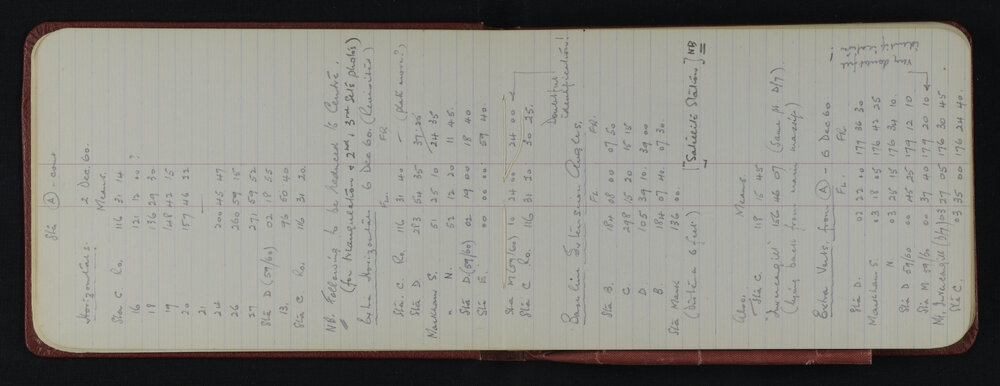 Stn (A) - cont
Horizontals: 2 Dec 60
Means.
Stn C Ro. 116 31 14
16 121 12 00 ?
18 136 29 30
19 148 42 15
20 157 46 32
21 —
24 200 45 47
26 260 59 15
27 271 59 52
Stn D (59/60) 02 18 55
13. 96 50 40
Stn C Ro. 116 31 20.
NB. Following to be reduced to Centre.
(for triangulation & 2nd & 3rd sets photos)
Extra Horizontals 6 Dec 60.
FL. FR
Stn. C Ro. 116 31 40 — (plate move?)
Stn D 283 54 35
Markham S. 51 25 10 24 35
" N. 52 12 20 11 45.
Stn D (59/60) 02 19 00 18 40
Stn E. 00 00 00 59 40
Stn M (59/60) 10 24 00 24 00
Stn C Ro. 116 31 30 30 25.
Doubtful identification!
Baseline Extension Angles.
FL FR.
Stn B. 184 08 00 07 50
C 298 15 20 15 15
D. 105 39 10. 39 00
B. 184 07 40. 07 30
Stn Mark 136 00
(distn 6 feet)
[Satellite Station] NB
Also Means
Stn C. 118 15 45
Inverugill 156 46 07 (Same M D/7)
(lying back from main massif)
Extra Verts. from (A) - 6 Dec 60
FL. FR.
Stn D. 02 22 00 177 36 30
Markham S. 03 18 05 176 42 25
" N 03 25 15 176 34 10.
Stn D 59/60 00 46 25 179 12 10
Stn M 59/60 00 37 40 179 20 10
03 27 05 176 30 45
Stn C. 03 35 00 176 24 40.